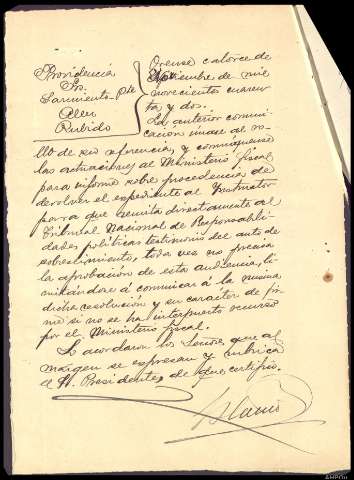 Providencia
Srs.
Sarmiento Pte
Aleu
Rubido
Orense catorce de
Septiembre de mil
novecientos cuaren-
ta y dos.
La anterior comuni-
cación únase al ro-
llo de su referencia, y comuníquense
las actuaciones al Ministerio fiscal
para informe sobre procedencia de
devolver el expediente al Instructor
para que remita directamente al
Tribunal Nacional de Responsabili-
dades políticas testimonio del auto de
sobreseimiento, toda vez no precisa
la aprobación de esta audiencia, li-
mitándose á comunicar á la misma
dicha resolución y su carácter de fir-
me si no se ha interpuesto recurso
por el Ministerio fiscal.
Lo acordaron los Señores que al
margen se expresan y rubrica
el Sr. Presidente, de que certifico.